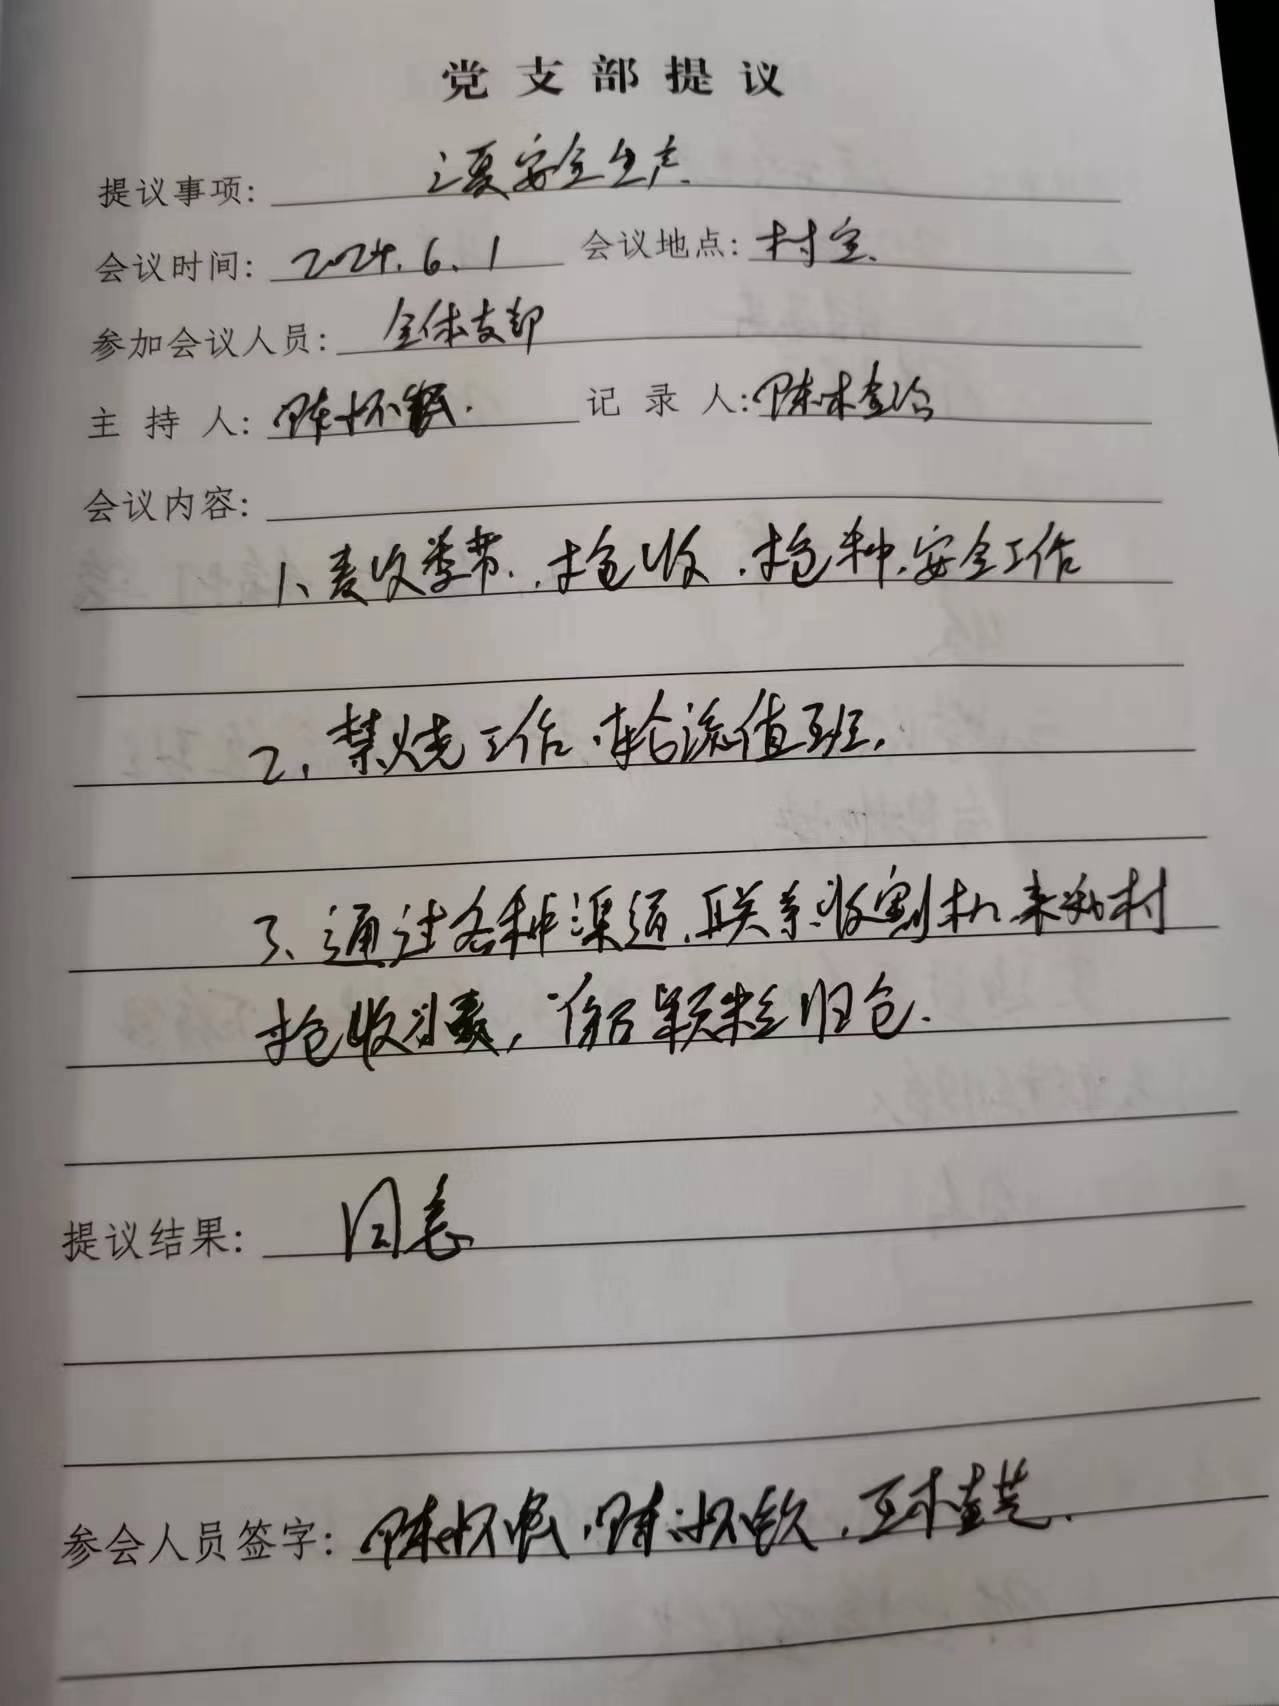 党支部提议
提议事项: 三夏安全生产
会议时间: 2024.6.1 会议地点: 村室
参加会议人员: 全体支部
主持人: 陈怀 记录人: 陈
会议内容:
1、麦收季节,抢收,抢种,安全工作
2、禁烧工作,轮流值班,
3、通过各种渠道,联系收割机来我村
抢收小麦,确保颗粒归仓.
提议结果: 同意
参会人员签字: 陈怀民,陈怀钦,王